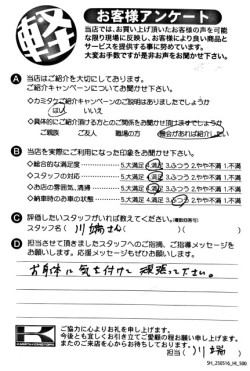 軽
お客様アンケート
当店では、お買い上げ頂いたお客様の声を可能
な限り現場に反映し、お客様により良い商品と
サービスを提供する事に努めています。
大変お手数ですが是非お声をお聞かせ下さい。
A 当店はご紹介を大切にしております。
ご紹介キャンペーンについてお聞かせ下さい。
◇カミタケご紹介キャンペーンのご説明はありましたでしょうか
はい いいえ
◇具体的にご紹介頂ける方とのご関係をお聞かせ頂けますでしょうか
ご親族 ご友人 職場の方 機会があれば紹介したい
B 当店を実際にご利用になった印象をお聞かせ下さい。
◇総合的な満足度 5.大満足 4.満足 3.ふつう 2.やや不満 1.不満
◇スタッフの対応 5.大満足 4.満足 3.ふつう 2.やや不満 1.不満
◇お店の雰囲気、清掃 5.大満足 4.満足 3.ふつう 2.やや不満 1.不満
◇納車時のお車の状態 5.大満足 4.満足 3.ふつう 2.やや不満 1.不満
C 評価したいスタッフがいれば教えてください。(複数回答可)
スタッフ名( 川端さん )( )
D 担当させて頂きましたスタッフへのご指摘、ご指導メッセージを
お願いします。応援メッセージもぜひお願いします。
お身体に気を付けて頑張って下さい。
K
ご協力に心よりお礼を申し上げます。
今後とも宜しくお引き立てご愛顧の程お願い申し上げます。
またのご来店を心からお待ちしております。
担当( 川端 )
SH_250516_HI_500